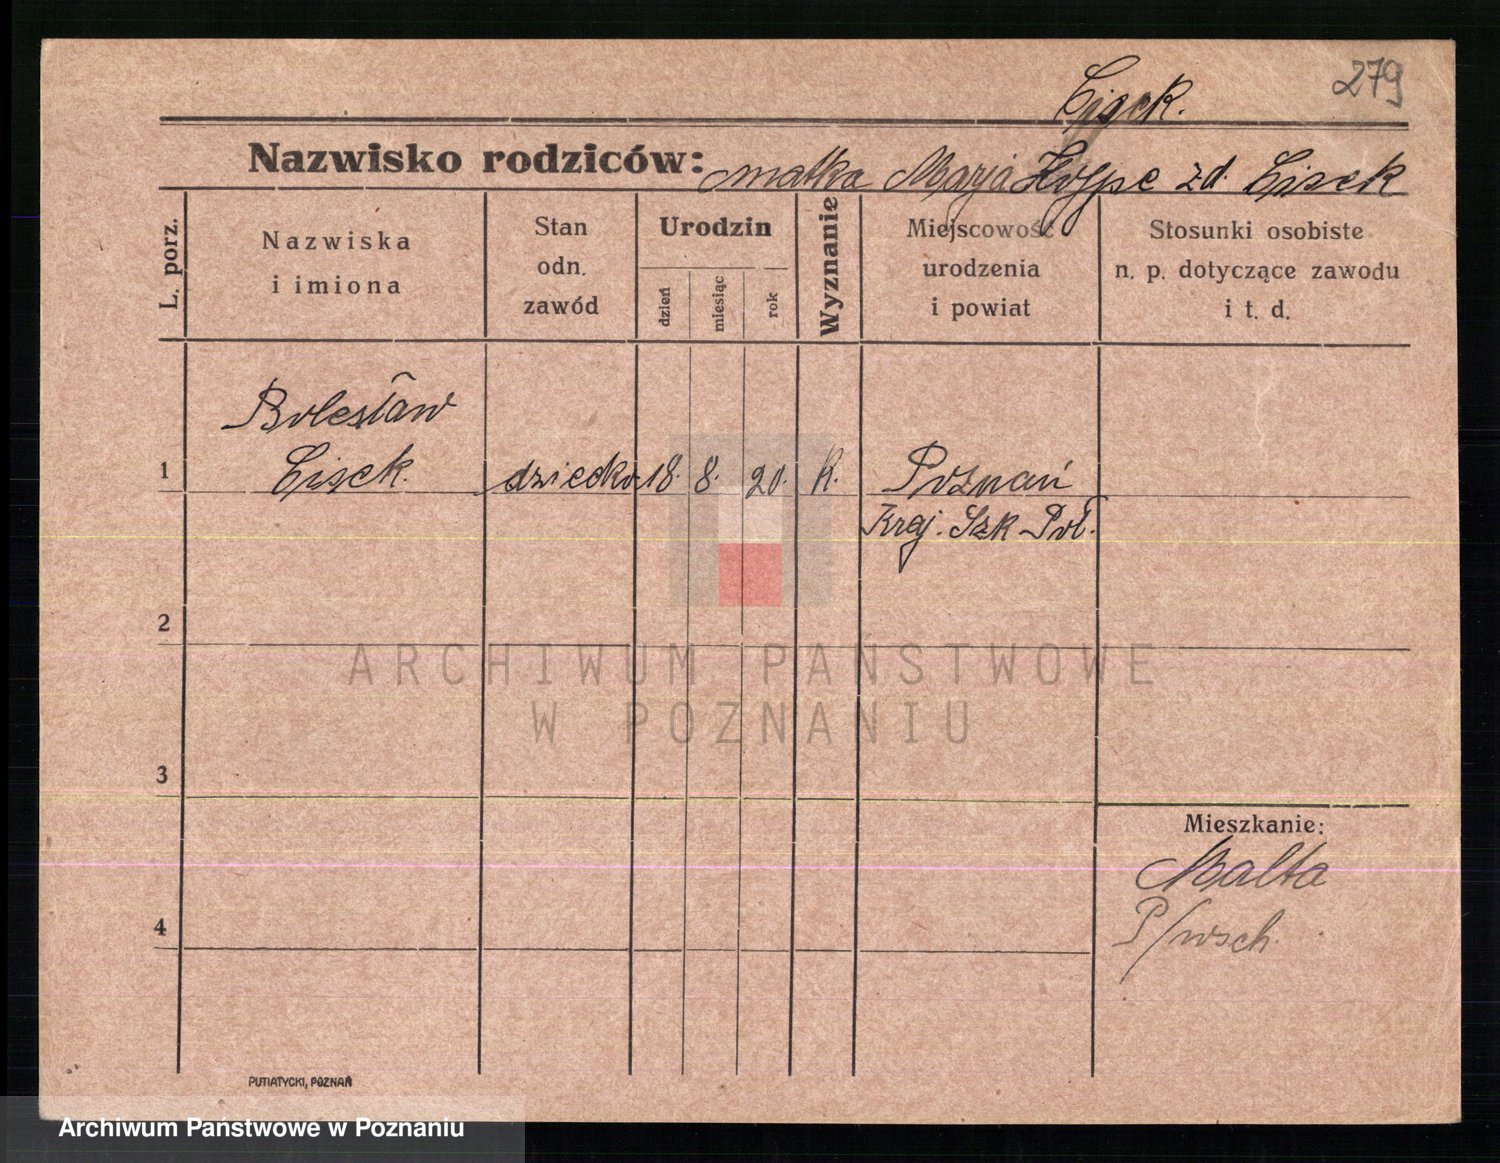 279
Lisek.
Nazwisko rodziców: matka Marja Hoppe zd. Lisek
L. porz.
Nazwiska
i imiona
Stan
odn.
zawód
Urodzin
dzień
miesiąc
rok
Wyznanie
Miejscowość
urodzenia
i powiat
Stosunki osobiste
n. p. dotyczące zawodu
i t. d.
Bolesław
1 Lisek. dziecko 18. 8. 20. R. Poznań
Kraj. Szk Poł.
2
ARCHIWUM PAŃSTWOWE
W POZNANIU
3
Mieszkanie:
Malta
4 P/wsch.
PUTIATYCKI, POZNAŃ
Archiwum Państwowe w Poznaniu